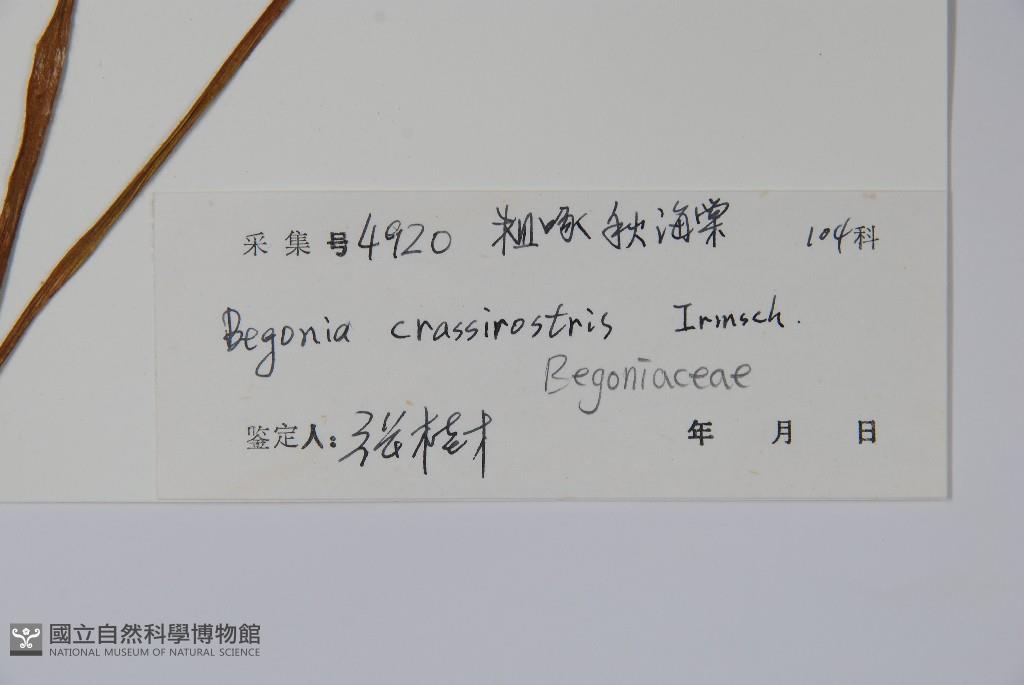 采集号4920 粗啄秋海棠 104科
Begonia crassirostris Irmsch.
Begoniaceae
鉴定人: 张桂才 年 月 日
國立自然科學博物館
NATIONAL MUSEUM OF NATURAL SCIENCE